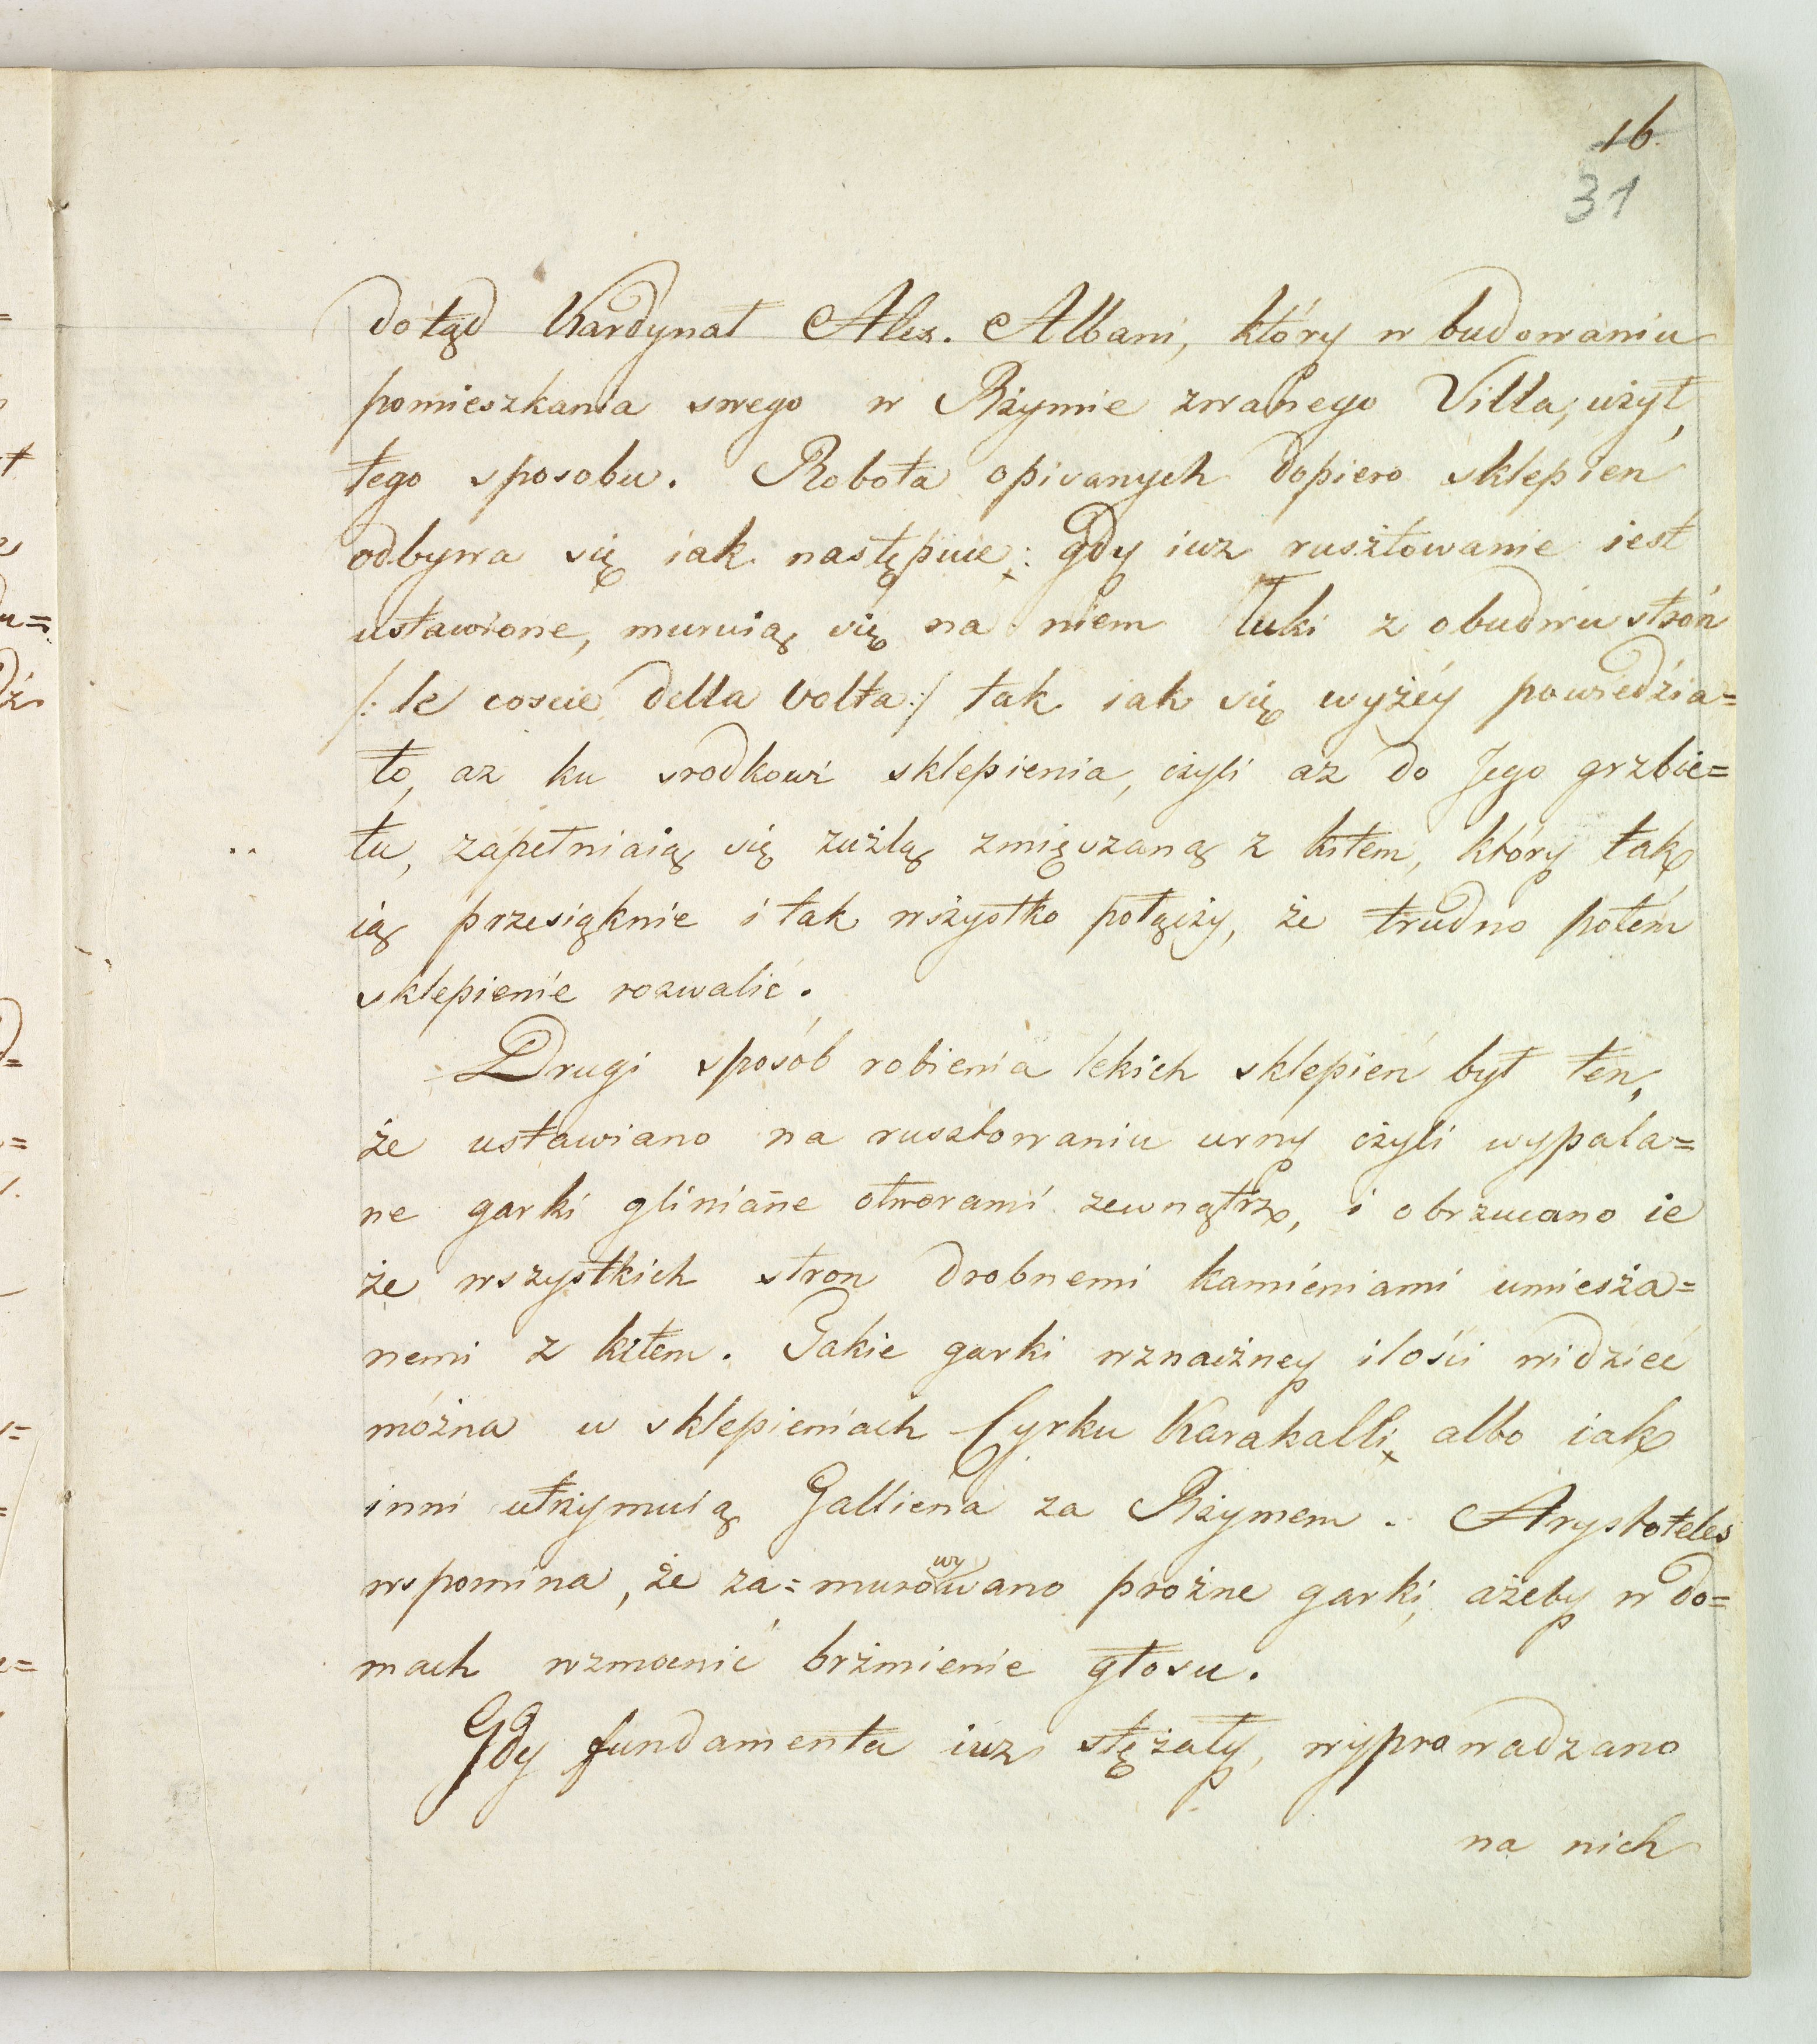 16.
31
dotąd Kardynał Alex. Albani, który w budowaniu
pomieszkania swego w Rzymie zwanego Villa, użył
tego sposobu. Robota opisanych dopiero sklepień
odbywa się iak następuie: gdy iuz rusztowanie iest
ustawione, muruią się na niem łuki z obudwu stron
/: le coscie della volta:/ tak iak się wyżéy powiedzia=
ło, az ku srodkowi sklepienia, czyli az do Jego grzbie=
tu, zapełniaią się zużlą zmięszaną z kitem, który tak
ią przesiąknie i tak wszystko połączy, że trudno potem
sklepienie rozwalić.
Drugi sposób robienia lekich sklepień był ten,
że ustawiano na rusztowaniu urny czyli wypala=
ne garki gliniane otworami zewnątrz, i obrzucano ie
ze wszystkich stron drobnemi kamieniami umiesza=
nemi z kitem. Takie garki wznaczney ilości widzieć
można w sklepieniach Cyrku Karakalli, albo iak
inni utrzymuią Galliena za Rzymem. Arystoteles
wspomina, że za=murowywano prożne garki, ażeby w do=
mach wzmocnić brzmienie głosu.
Gdy fundamenta iuz stężały, wyprowadzano
na nich